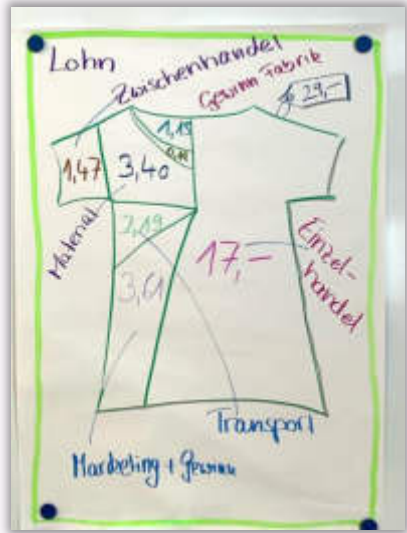 Lohn
Zwischenhandel
Gewinn Fabrik
29,-
1,15
1,47
3,40
Material
2,19
3,61
17,-
Einzel-
handel
Transport
Marketing + Gewinn